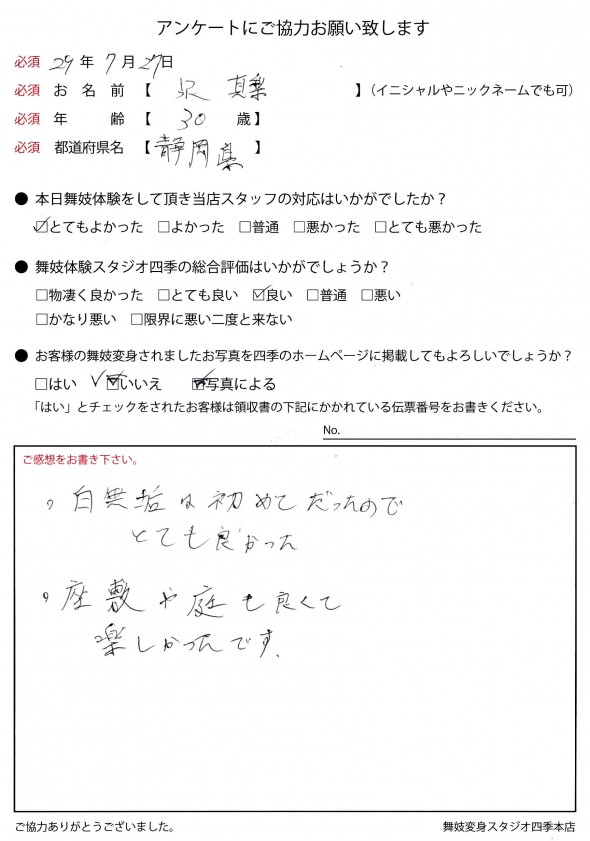 アンケートにご協力お願い致します
必須 29年 7月 27日
必須 お名前【 沢 真楽 】（イニシャルやニックネームでも可）
必須 年齢【 30 歳】
必須 都道府県名【静岡県】
● 本日舞妓体験をして頂き当店スタッフの対応はいかがでしたか？
☑とてもよかった □よかった □普通 □悪かった □とても悪かった
● 舞妓体験スタジオ四季の総合評価はいかがでしょうか？
□物凄く良かった □とても良い ☑良い □普通 □悪い
□かなり悪い □限界に悪い二度と来ない
● お客様の舞妓変身されましたお写真を四季のホームページに掲載してもよろしいでしょうか？
□はい ✓☑いいえ ☑写真による
「はい」とチェックをされたお客様は領収書の下記にかかれている伝票番号をお書きください。
No.
ご感想をお書き下さい。
。白無垢は初めてだったので
とても良かった
。座敷や庭も良くて
楽しかったです.
ご協力ありがとうございました。
舞妓変身スタジオ四季本店